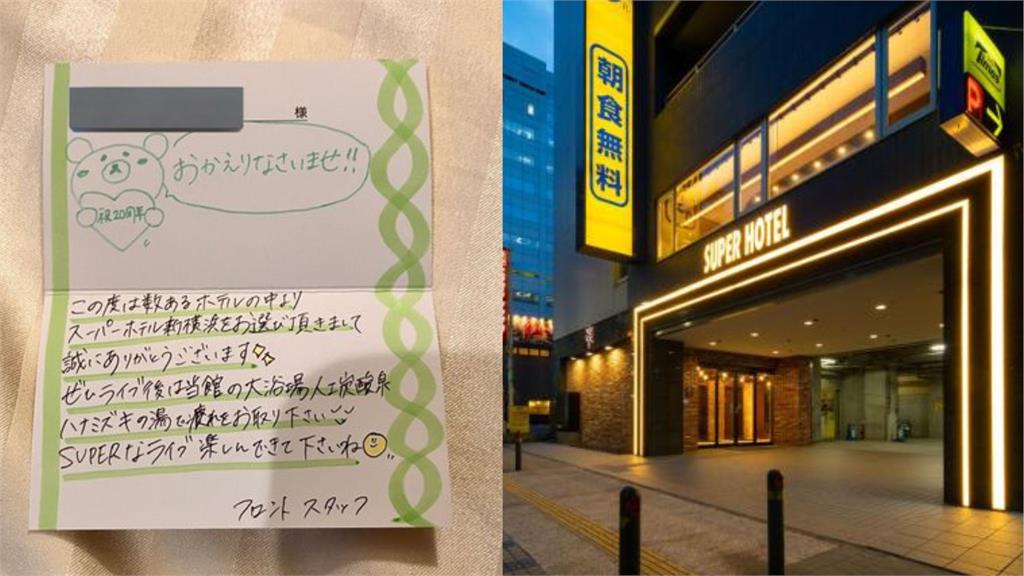 様
おかえりなさいませ!!
祝20周年
この度は数あるホテルの中より
スーパーホテル新横浜をお選び頂きまして
誠にありがとうございます
ぜひライブ後は当館の大浴場人工炭酸泉
ハナミズキの湯で疲れをお取り下さい
SUPERなライブ楽しんできて下さいね
フロントスタッフ
朝食無料
SUPER HOTEL
Times
P→